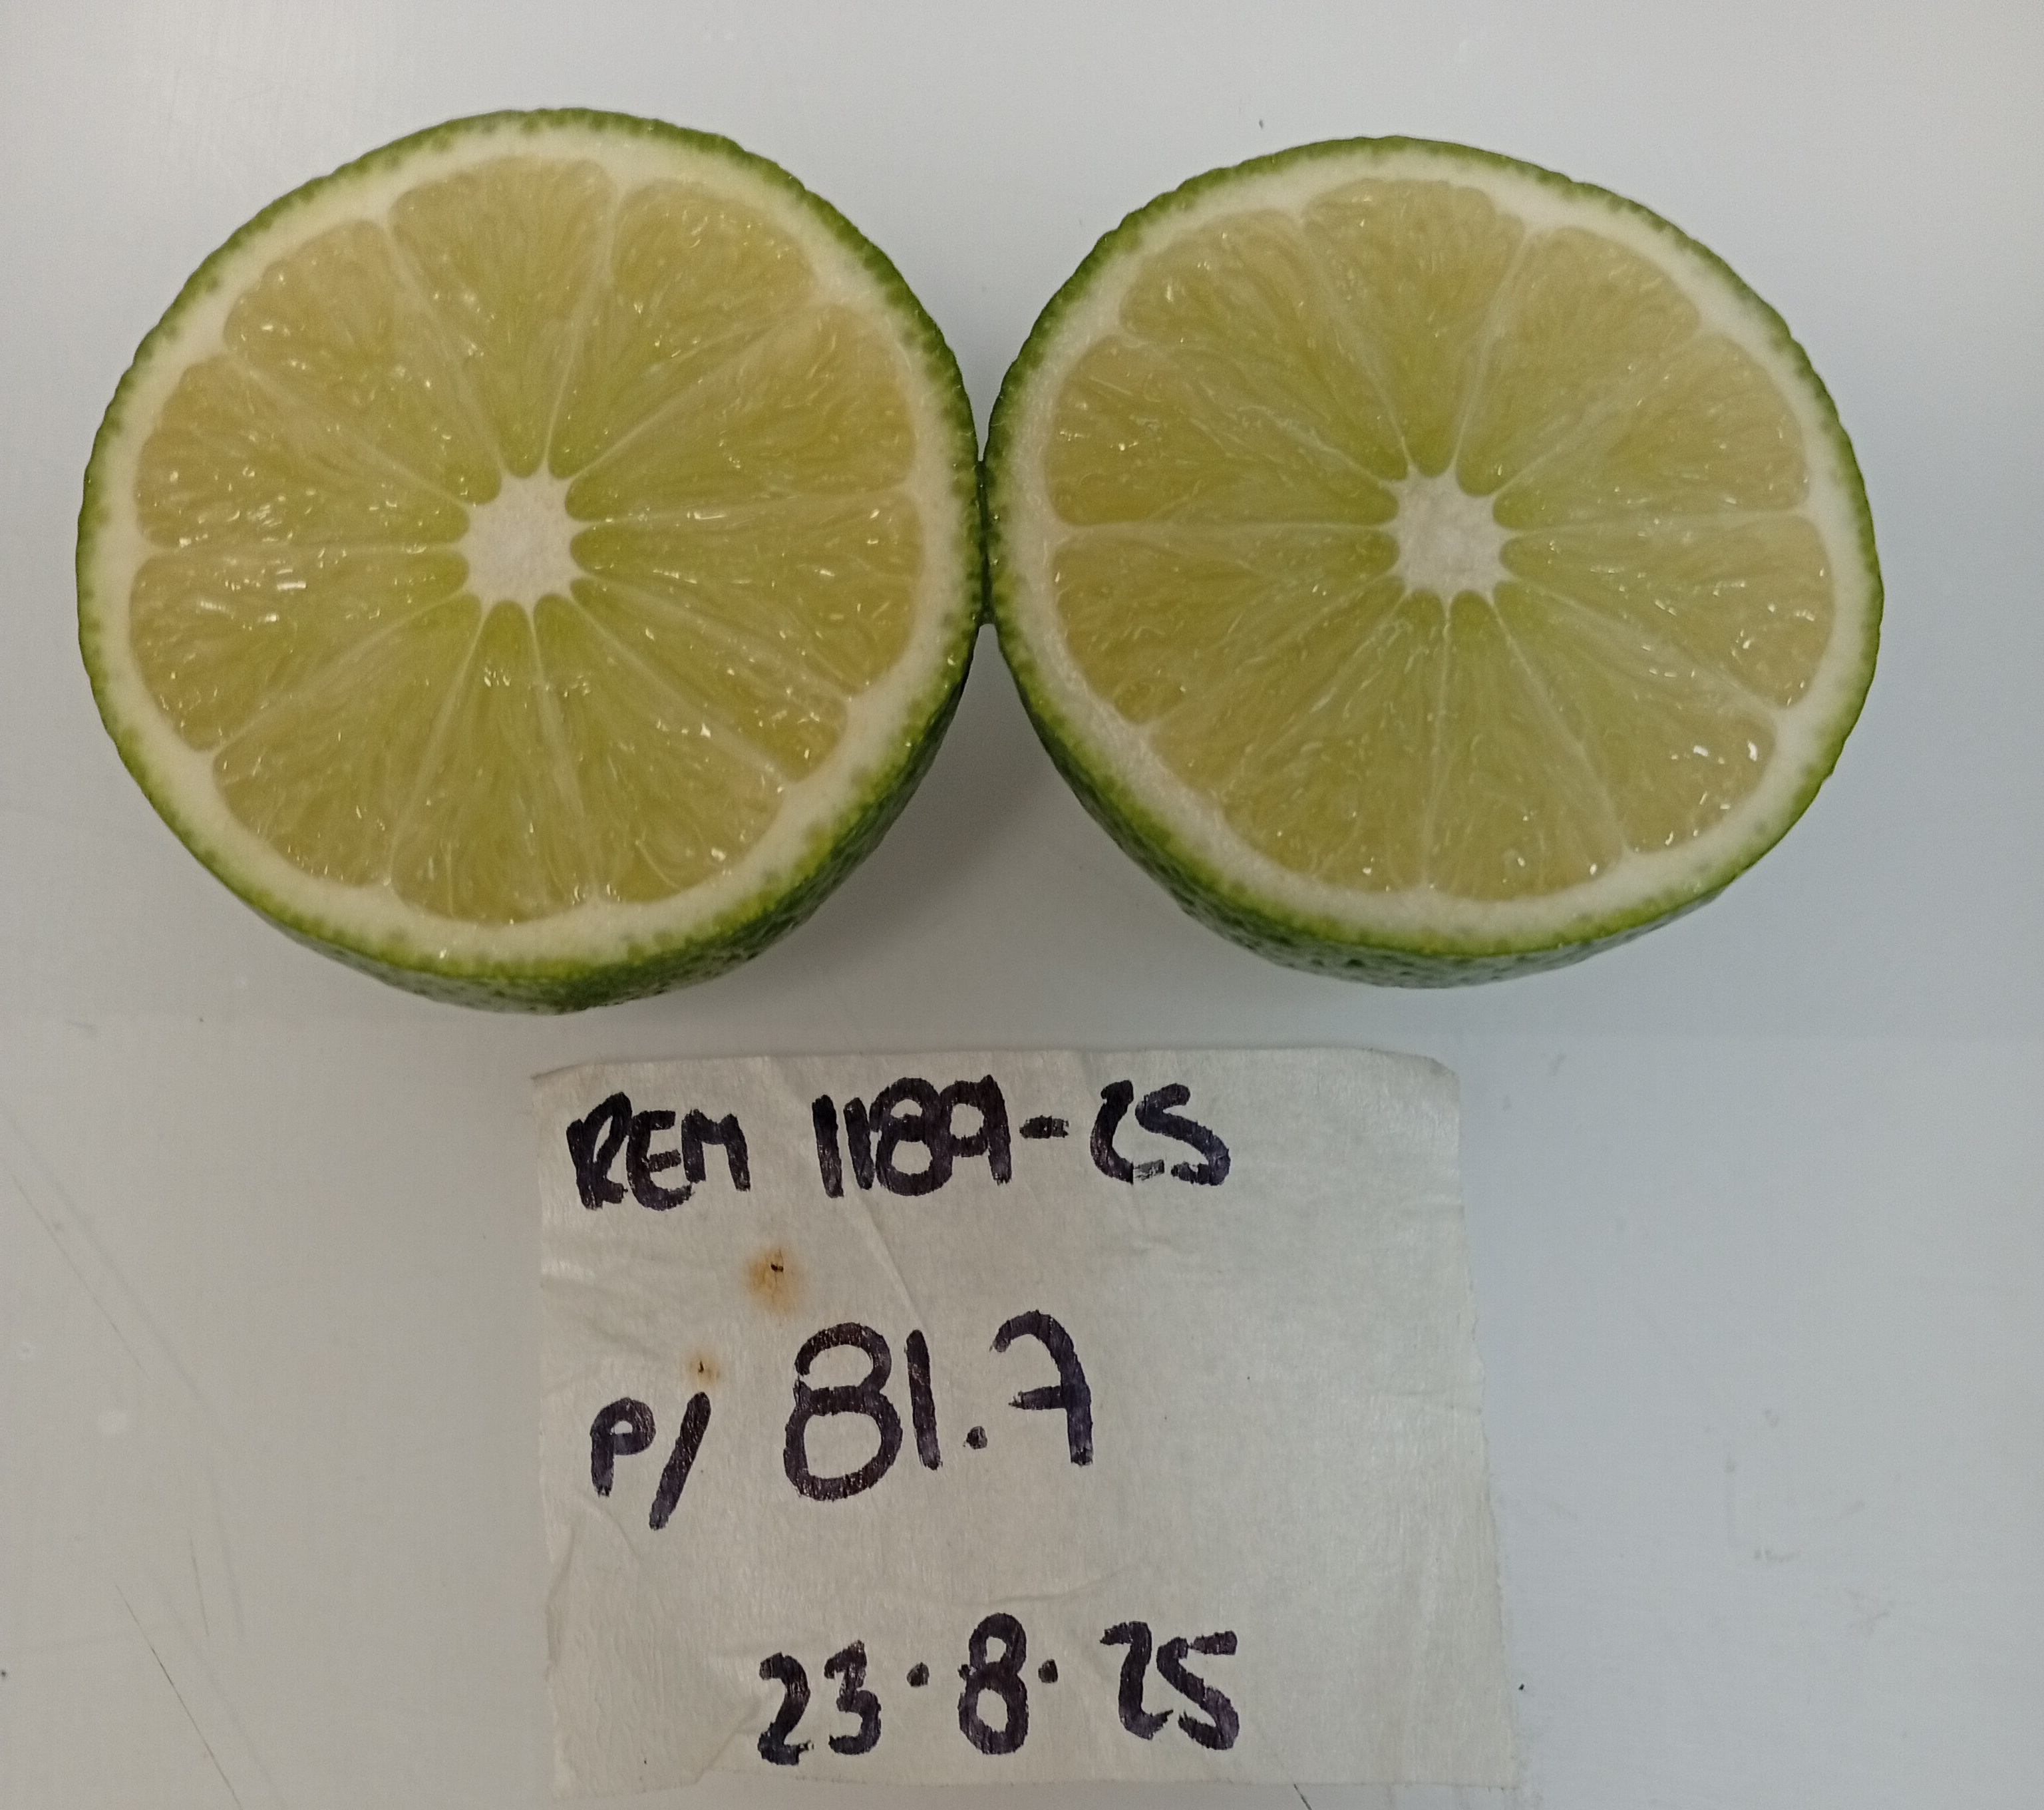 REM 1189-25
P/ 81.7
23.8.25